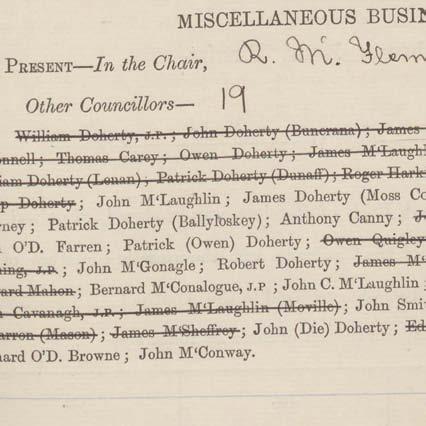 MISCELLANEOUS BUSIN
PRESENT—In the Chair, R. M. Flem
Other Councillors— 19
William Doherty, J.P.; John Doherty (Buncrana); James
onnell; Thomas Carey; Owen Doherty; James M'Laughl
iam Doherty (Lenan); Patrick Doherty (Dunaff); Roger Hark
ip Doherty; John M'Laughlin; James Doherty (Moss Co
rney; Patrick Doherty (Ballyloskey); Anthony Canny; J
n O'D. Farren; Patrick (Owen) Doherty; Owen Quigley
ning, J.P.; John M'Gonagle; Robert Doherty; James M'
ard Mahon; Bernard M'Conalogue, J.P; John C. M'Laughlin;
n Cavanagh, J.P.; James M'Laughlin (Moville); John Smi
arron (Mason); James M'Sheffrey; John (Die) Doherty; Ed
nard O'D. Browne; John M'Conway.